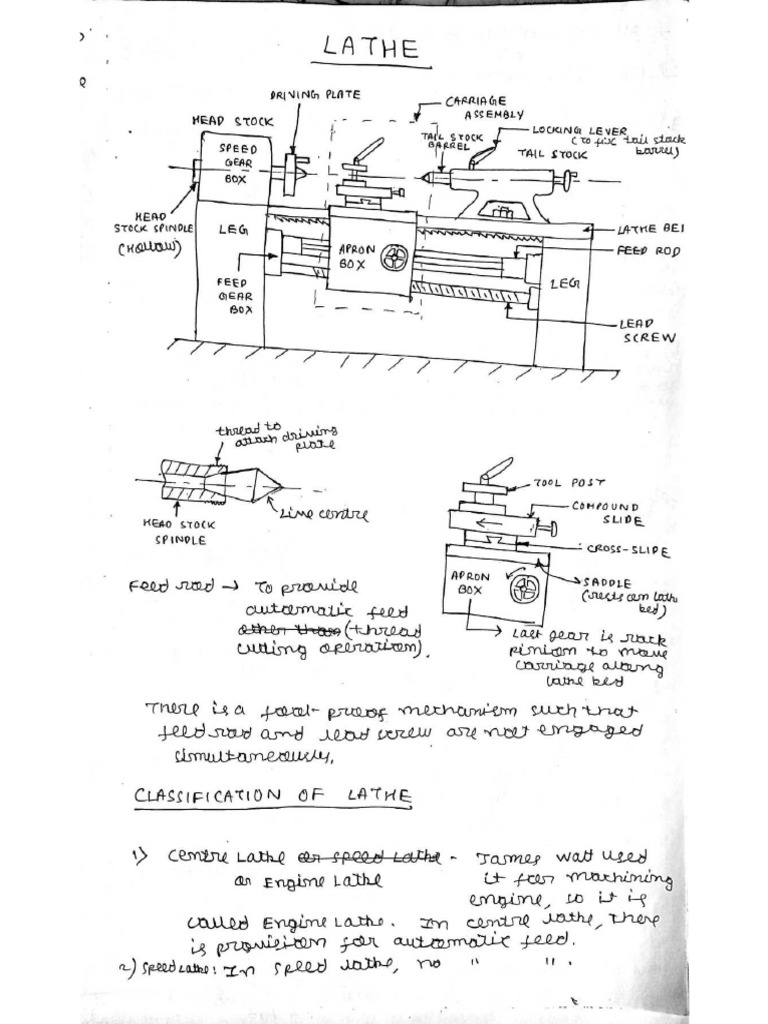 LATHE
DRIVING PLATE
CARRIAGE
ASSEMBLY
HEAD STOCK
TAIL STOCK
BARREL
LOCKING LEVER
(to fix tail stock
barrel)
TAIL STOCK
SPEED
GEAR
BOX
HEAD
STOCK SPINDLE
(Hollow)
LEG
APRON
BOX
LATHE BE
FEED ROD
FEED
GEAR
BOX
LEG
LEAD
SCREW
thread to
attach driving
plate
Line centre
HEAD STOCK
SPINDLE
TOOL POST
COMPOUND
SLIDE
CROSS-SLIDE
APRON
BOX
SADDLE
(rests on lathe
bed)
Feed rod → To provide
automatic feed
other than (thread
cutting operation).
Last gear is rack
pinion to move
carriage along
lathe bed
There is a fool-proof mechanism such that
feed rod and lead screw are not engaged
simultaneously.
CLASSIFICATION OF LATHE
1) Centre Lathe or speed Lathe - James watt used
or Engine Lathe it for machining
engine, so it is
called Engine Lathe. In centre lathe, there
is provision for automatic feed.
2) Speed Lathe: In speed lathe, no " ".